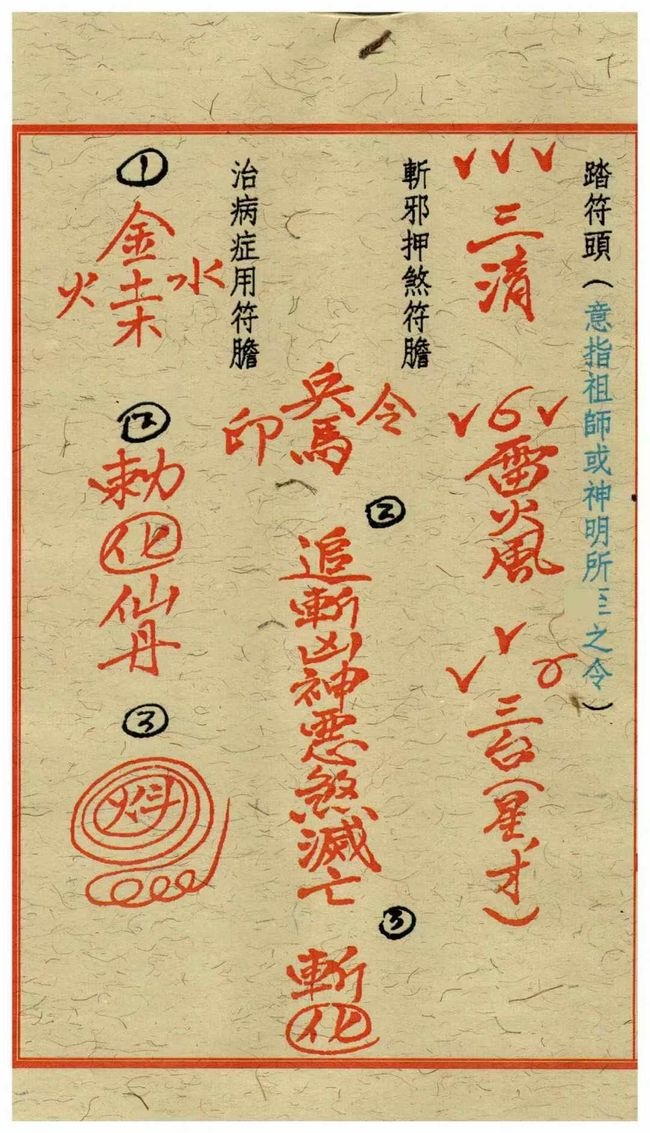 踏符頭（意指祖師或神明所 之令）
三清
雷火風
三台（星、才）
斬邪押煞符膽
令
兵馬
印
②
追斬凶神惡煞滅亡
③
斬化
治病症用符膽
①
金
水 土 火
木
②
勅化仙丹
③